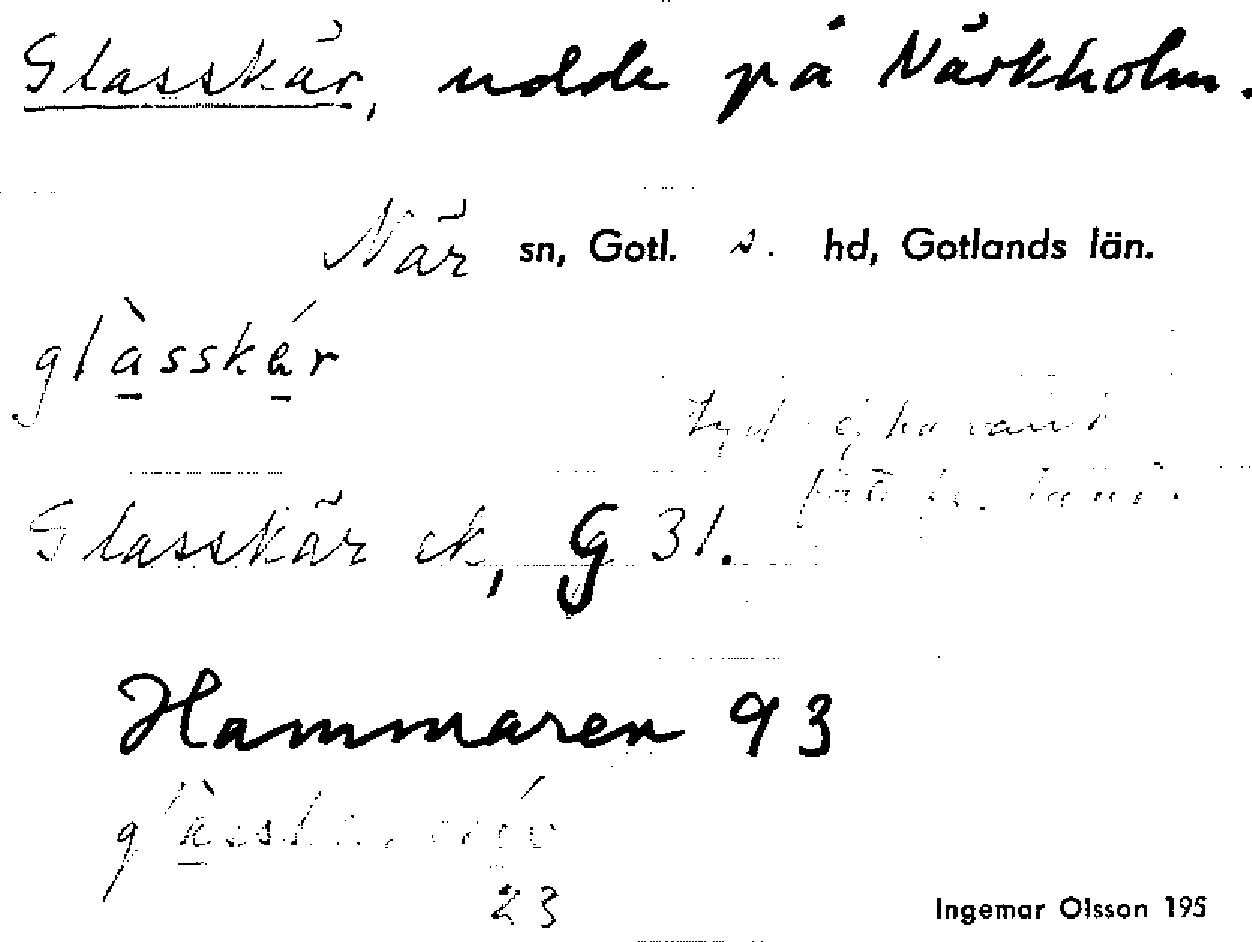 Glasskär, udde på Närkholm.
När sn, Gotl. s. hd, Gotlands län.
glàsskér
Glasskär ek, G 31.
Hammaren 93
23
Ingemar Olsson 195